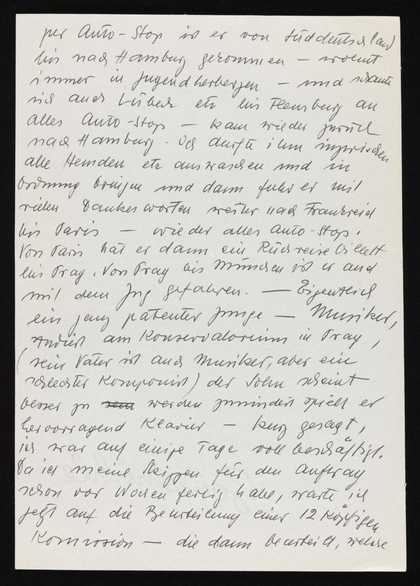 per Auto-Stop ist er von Süddeutschland
bis nach Hamburg gekommen – wohnt
immer in Jugendherbergen – und schaute
sich auch Lübeck etc bis Flensburg an
alles Auto-Stop – kam wieder zurück
nach Hamburg. Ich durfte ihm inzwischen
alle Hemden etc auswaschen und in
Ordnung bringen und dann fuhr er mit
vielen Dankesworten weiter nach Frankreich
bis Paris – wieder alles Auto-Stop.
Von Paris hat er dann ein Rückreisebillett
bis Prag. Von Prag bis München ist er auch
mit dem Zug gefahren. – Eigentlich
ein ganz patenter Junge – Musiker,
studiert am Konservatorium in Prag,
(sein Vater ist auch Musiker, aber ein
schlechter Komponist) der Sohn scheint
besser zu werden zumindest spielt er
hervorragend Klavier – kurz gesagt,
ich war auf einige Tage voll beschäftigt.
Da ich meine Skizzen für den Auftrag
schon vor Wochen fertig habe, warte ich
jetzt auf die Beurteilung einer 12 köpfigen
Komission – die dann beurteilt, welche